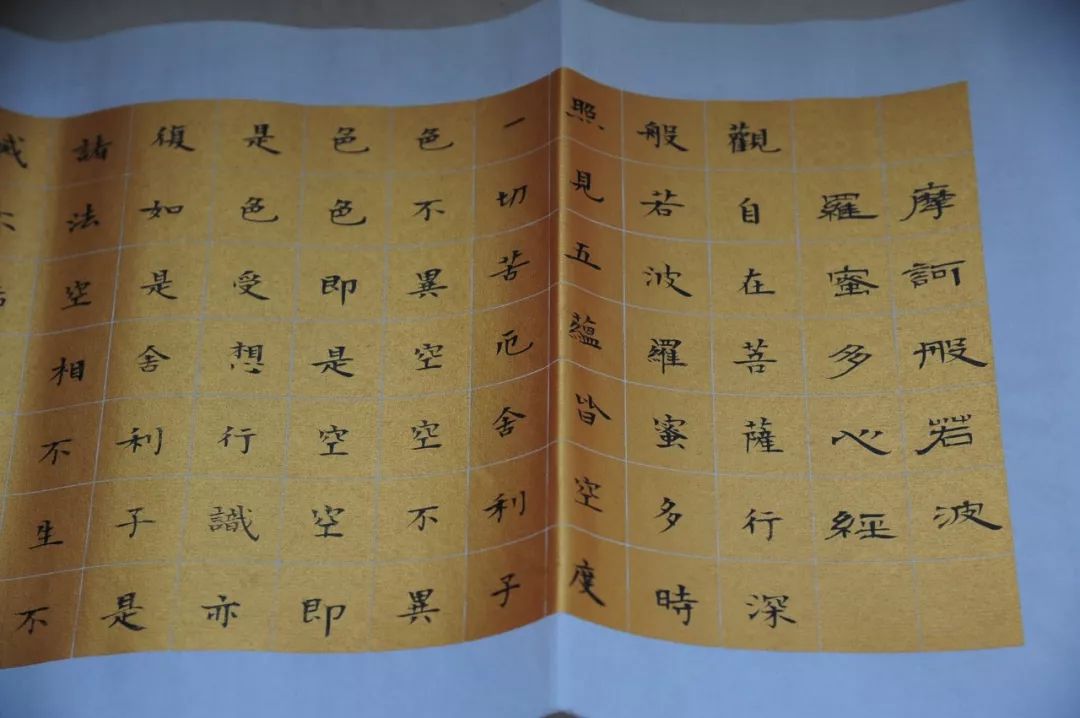 摩訶般若波
羅蜜多心經
觀自在菩薩行深
般若波羅蜜多時
照見五蘊皆空度
一切苦厄舍利子
色不異空空不異
色色即是空空即
是色受想行識亦
復如是舍利子是
諸法空相不生不